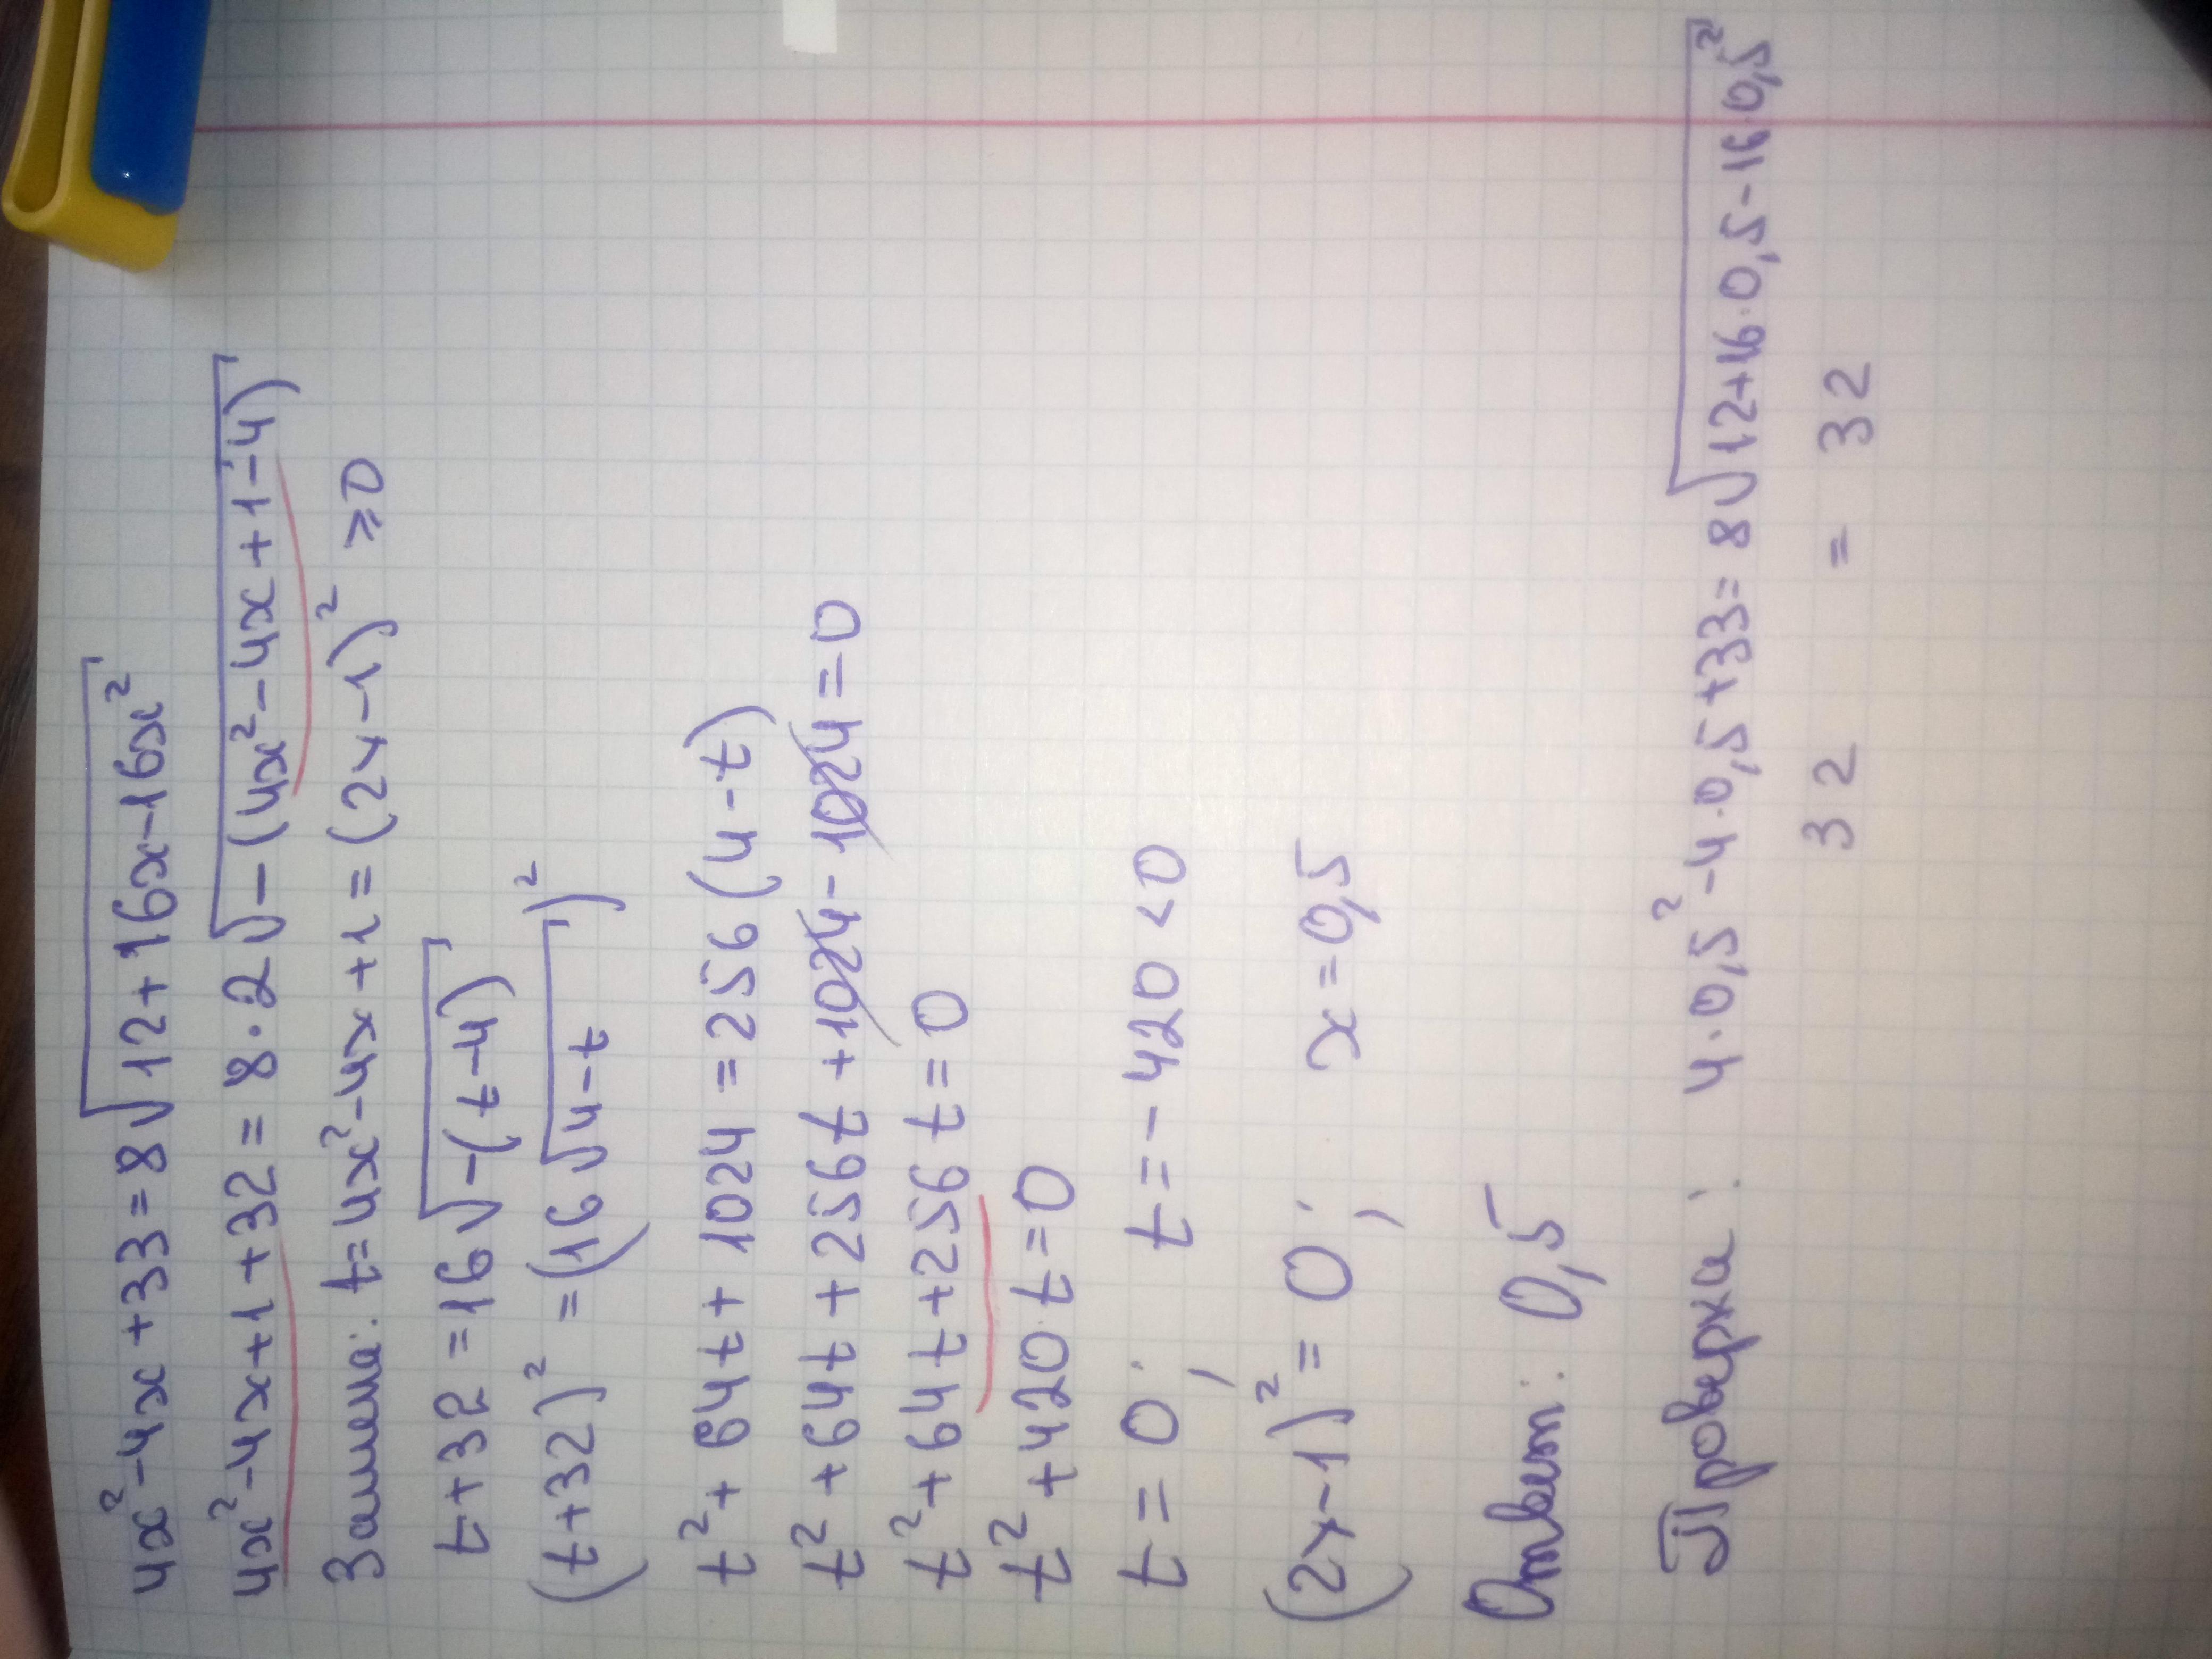 4x² - 4x + 33 = 8√12 + 16x - 16x²
4x² - 4x + 1 + 32 = 8 · 2√-(4x² - 4x + 1 - 4)
Замена: t = 4x² - 4x + 1 = (2x - 1)² ≥ 0
t + 32 = 16√-(t - 4)
(t + 32)² = (16√4 - t)²
t² + 64t + 1024 = 256(4 - t)
t² + 64t + 256t + 1024 - 1024 = 0
t² + 64t + 256t = 0
t² + 420t = 0
t = 0; t = -420 < 0
(2x - 1)² = 0; x = 0,5
Ответ: 0,5
Проверка: 4·0,5² - 4·0,5 + 33 = 8√12 + 16·0,5 - 16·0,5²
32 = 32